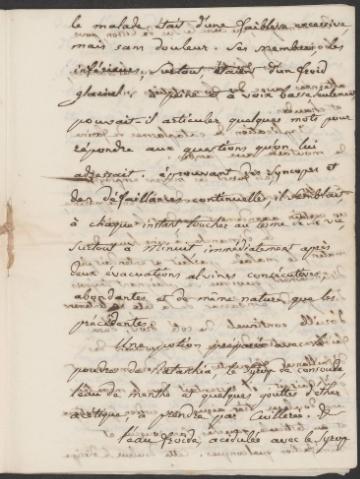 le malade était d'une faiblesse excessive,
mais sans douleur. Ses membres, les
inférieurs surtout, étaient d'un froid
glacial; à peine et à voix basse seulement
pouvait-il articuler quelques mots pour
répondre aux questions qu'on lui
adressait. éprouvant des syncopes et
des défaillances continuelles, il semblait
à chaque instant toucher au terme de sa vie
surtout à minuit immédiatement après
deux évacuations alvines consécutives,
abondantes et de même nature que les
précédentes.
Une potion préparée avec la
poudre de Ratanhia, le syrop de consoude
l'eau de menthe et quelques gouttes d'éther
acétique, à prendre par cuillerée, &
l'eau froide, acidulée avec le syrop